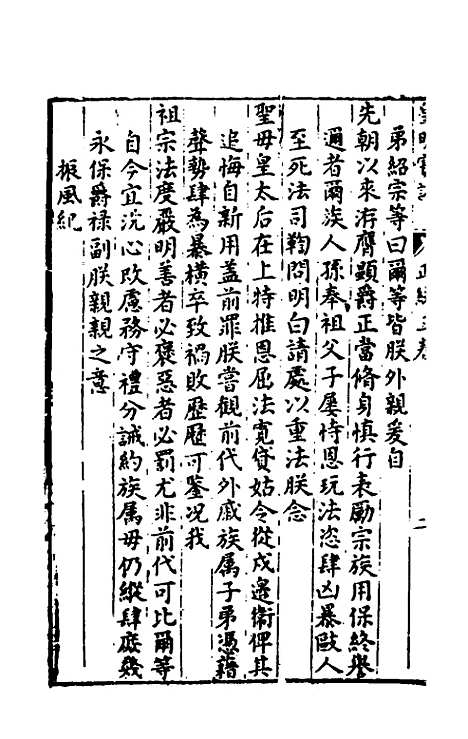 皇明寶訓 正統三卷 二
弟紹宗等曰爾等皆朕外親爰自
先朝以來洊膺顯爵正當脩身慎行表勵宗族用保終譽
邇者爾族人孫奉祖父子屢恃恩玩法恣肆凶暴毆人
至死法司鞫問明白請處以重法朕念
聖母皇太后在上特推恩屈法寬貸姑令從戍邊衛俾其
追悔自新用蓋前罪朕嘗觀前代外戚族属子弟憑藉
聲勢肆為暴橫卒致禍敗歷歷可鑒况我
祖宗法度嚴明善者必褒惡者必罰尤非前代可比爾等
自今宜洗心改慮務守禮分誡約族属毋仍縱肆庶幾
永保爵祿副朕親親之意
振風紀